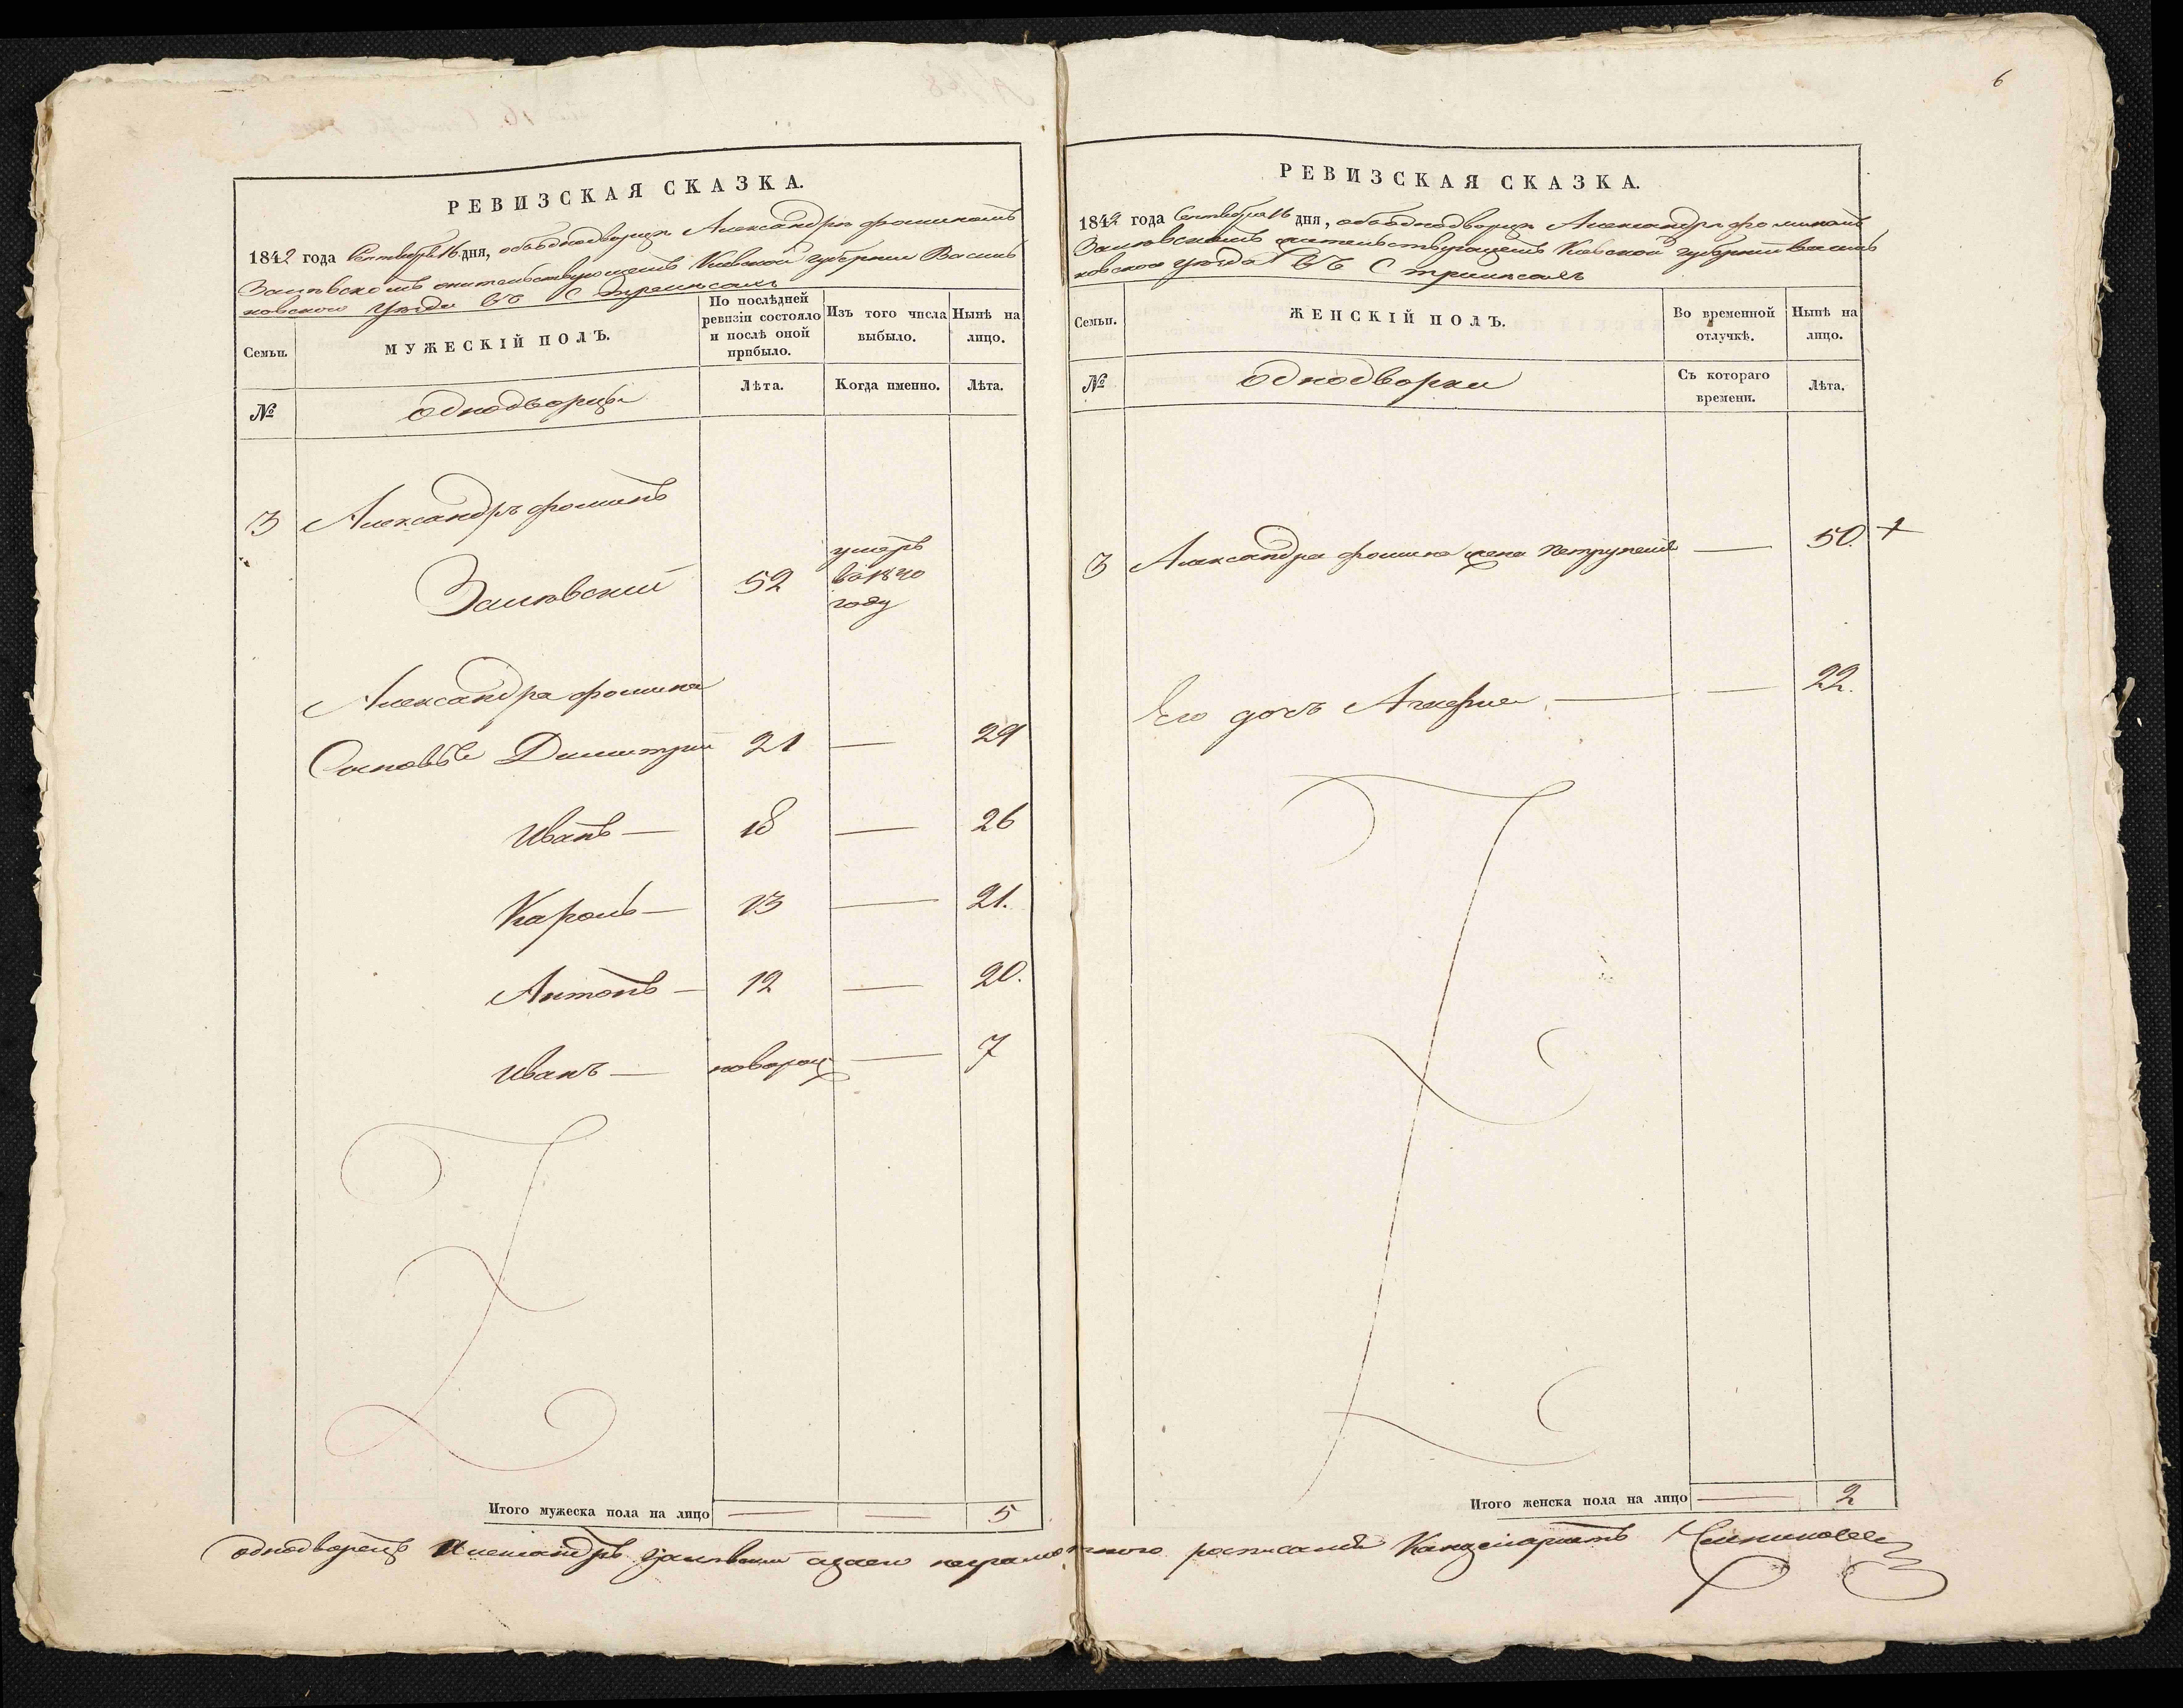 РЕВИЗСКАЯ СКАЗКА.
1842 года Сентября 16 дня, объ однодворце Александръ Фоминомъ
жительствующемъ Киевской губернии Василь
ковского уезда въ С
Семьи.
МУЖЕСКІЙ ПОЛЪ.
По послѣдней ревизіи состояло и послѣ оной прибыло.
Изъ того числа выбыло.
Нынѣ на лицо.
№
однодворцы
Лѣта.
Когда именно.
Лѣта.
3 Александръ Фоминъ
52 умеръ въ 1840 году
Александра Фомина
Сыновья Димитрий 21 — 29
Иванъ — 18 — 26
Кароль — 13 — 21.
Антонъ — 12 — 20.
Иванъ — новорож — 7
Итого мужеска пола на лицо — — 5
6
РЕВИЗСКАЯ СКАЗКА.
1842 года Сентября 16 дня, объ однодворце Александръ Фоминомъ
жительствующемъ Киевской губернии Василь
ковского уезда въ С
Семьи.
ЖЕНСКІЙ ПОЛЪ.
Во временной отлучкѣ.
Нынѣ на лицо.
№
однодворки
Съ котораго времени.
Лѣта.
3 Александра Фомина жена — 50. +
Его дочь — — 22.
Итого женска пола на лицо — 2
однодворецъ Александръ а за его неграмотного росписался Канцеляристъ